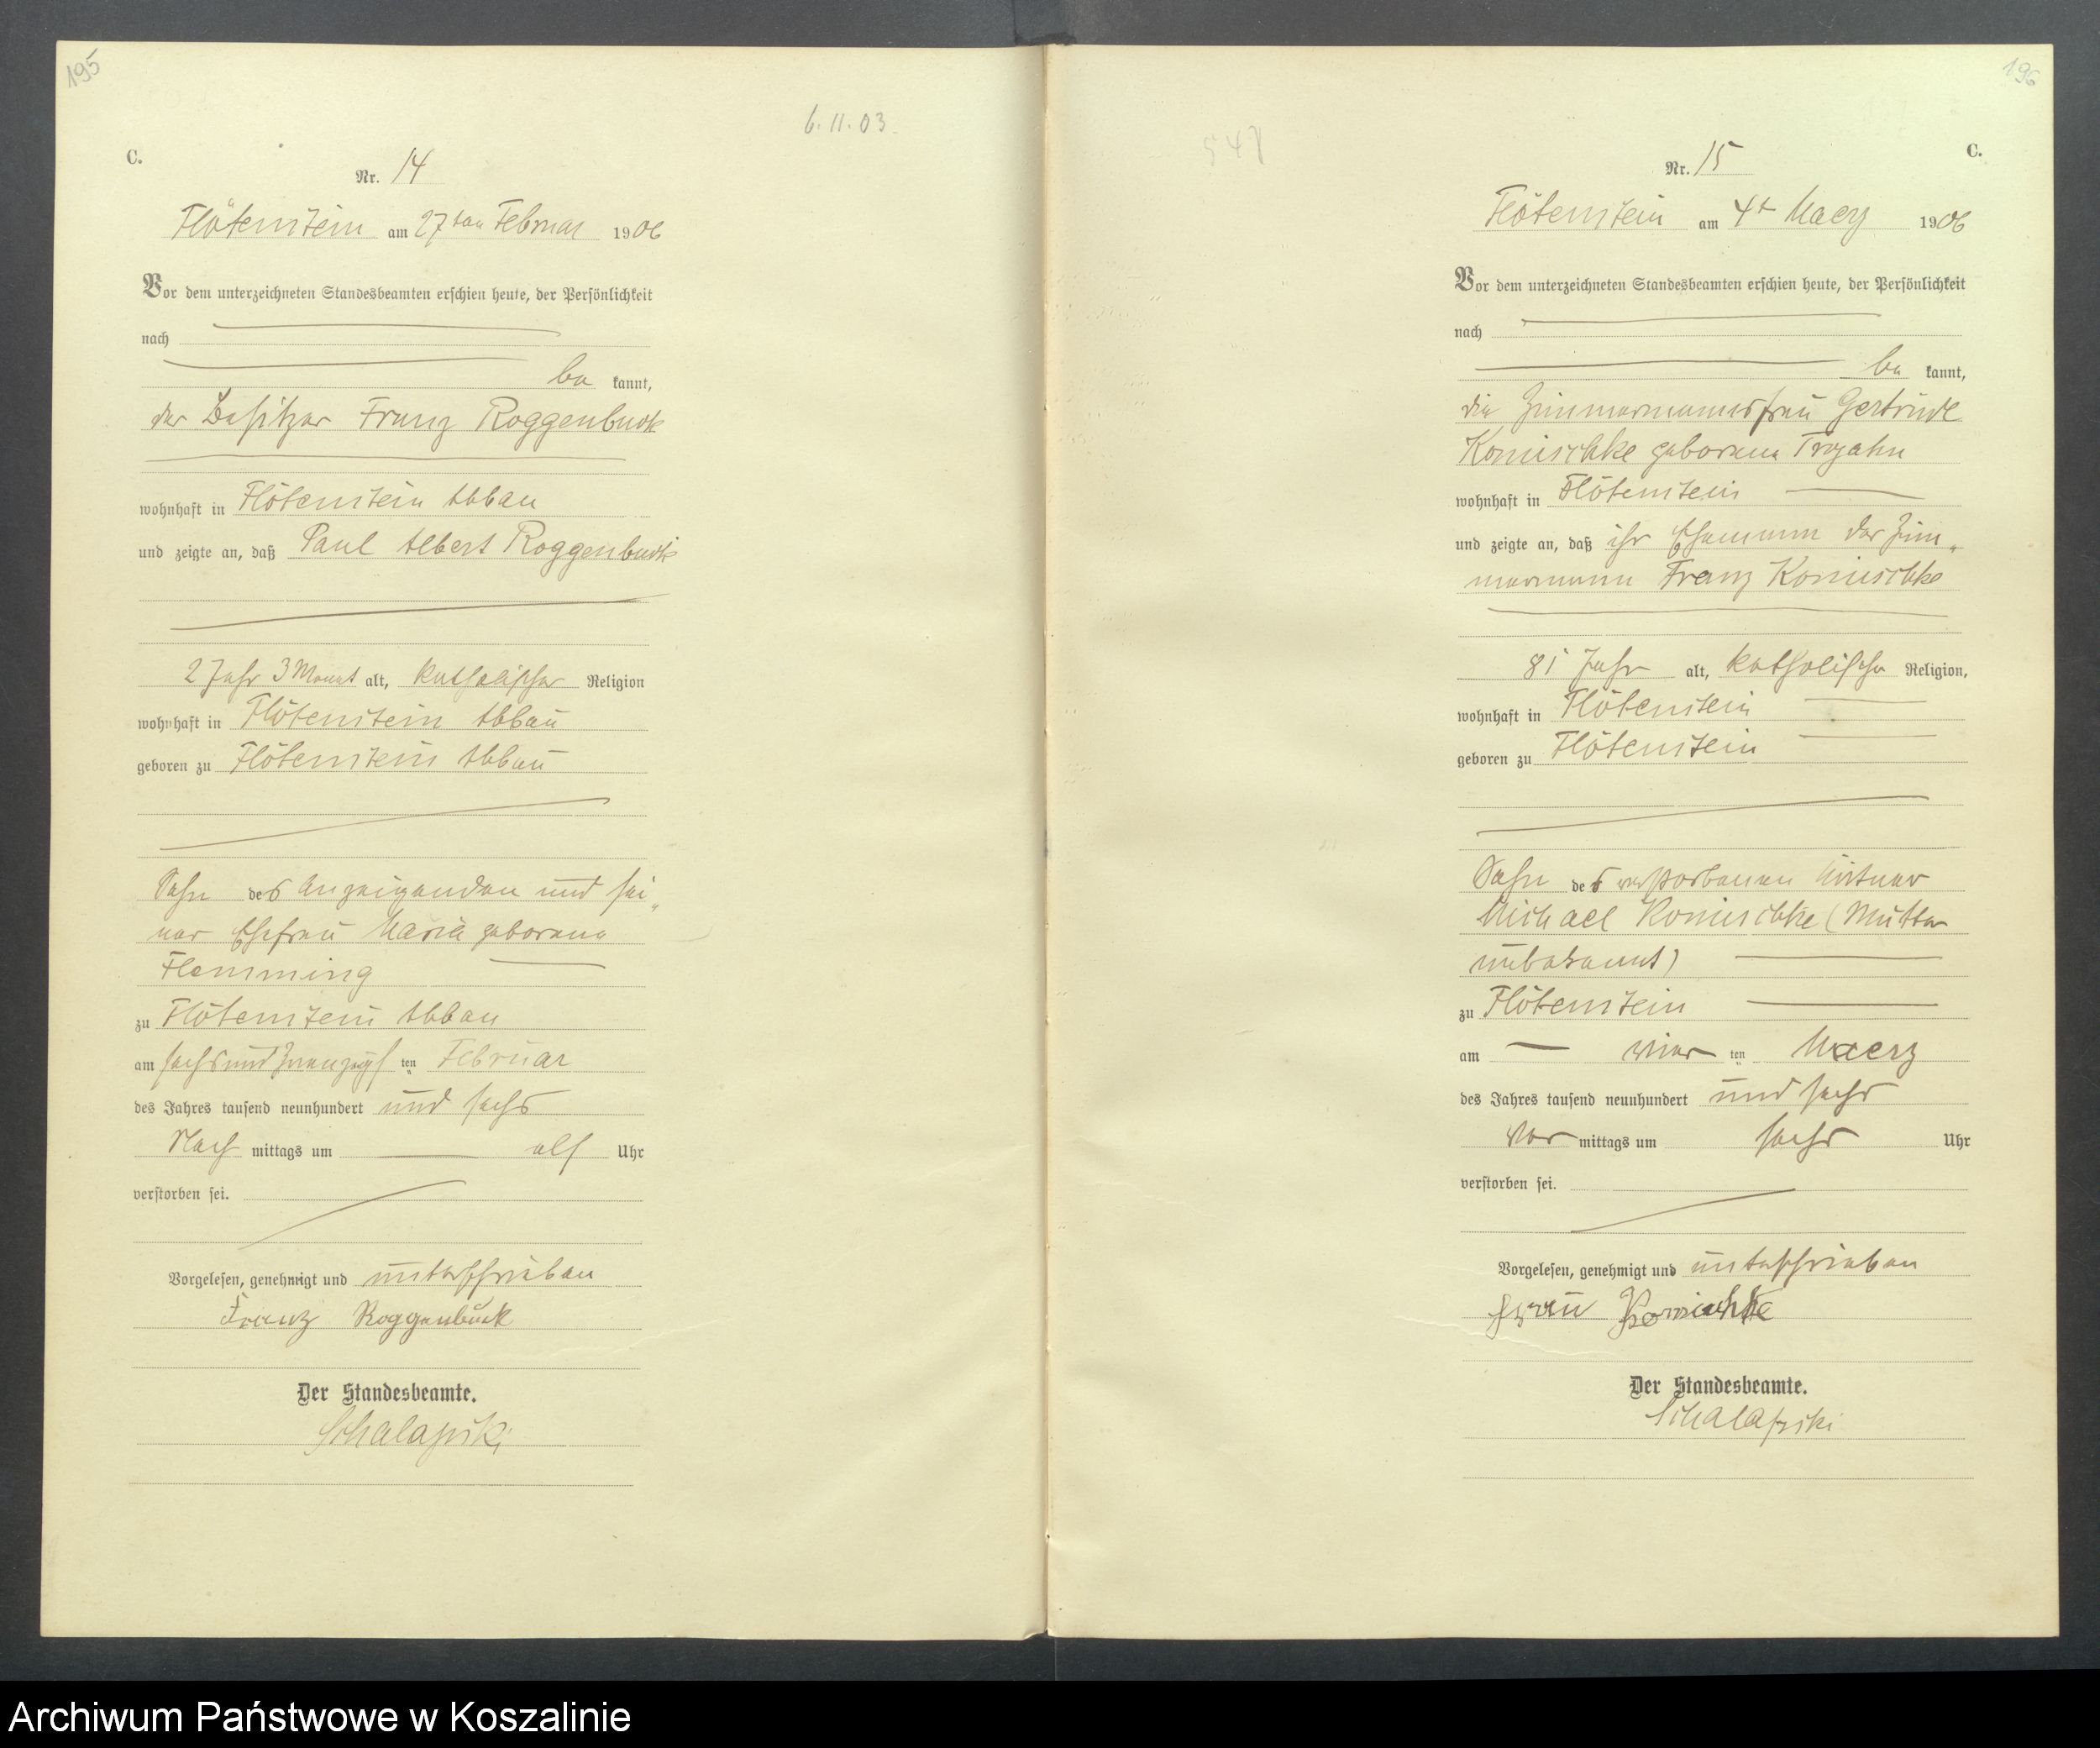 195
6.11.03.
C.
Nr. 14
Flötenstein am 27ten Februar 1906
Vor dem unterzeichneten Standesbeamten erschien heute, der Persönlichkeit
nach
be kannt,
der Besitzer Franz Roggenbuck
wohnhaft in Flötenstein Abbau
und zeigte an, daß Paul Albert Roggenbuck
2 Jahr 3 Monat alt, katholischer Religion
wohnhaft in Flötenstein Abbau
geboren zu Flötenstein Abbau
Sohn des Anzeigenden und sei„
ner Ehefrau Maria geborene
Flemming
zu Flötenstein Abbau
am sechsundzwanzigsten Februar
des Jahres tausend neunhundert und sechs
Nach mittags um elf Uhr
verstorben sei.
Vorgelesen, genehmigt und unterschrieben
Franz Roggenbuck
Der Standesbeamte.
Schalapski
196
C.
Nr. 15
Flötenstein am 4t Maerz 1906
Vor dem unterzeichneten Standesbeamten erschien heute, der Persönlichkeit
nach
be kannt,
die Zimmermannsfrau Gertrude
Konischke geborene Trojahn
wohnhaft in Flötenstein
und zeigte an, daß ihr Ehemann der Zim„
mermann Franz Konischke
81 Jahr alt, katholischer Religion,
wohnhaft in Flötenstein
geboren zu Flötenstein
Sohn des verstorbenen
Michael Konischke (Mutter
unbekannt)
zu Flötenstein
am vier ten Maerz
des Jahres tausend neunhundert und sechs
Vor mittags um sechs Uhr
verstorben sei.
Vorgelesen, genehmigt und unterschrieben
Frau Konischke
Der Standesbeamte.
Schalapski
Archiwum Państwowe w Koszalinie